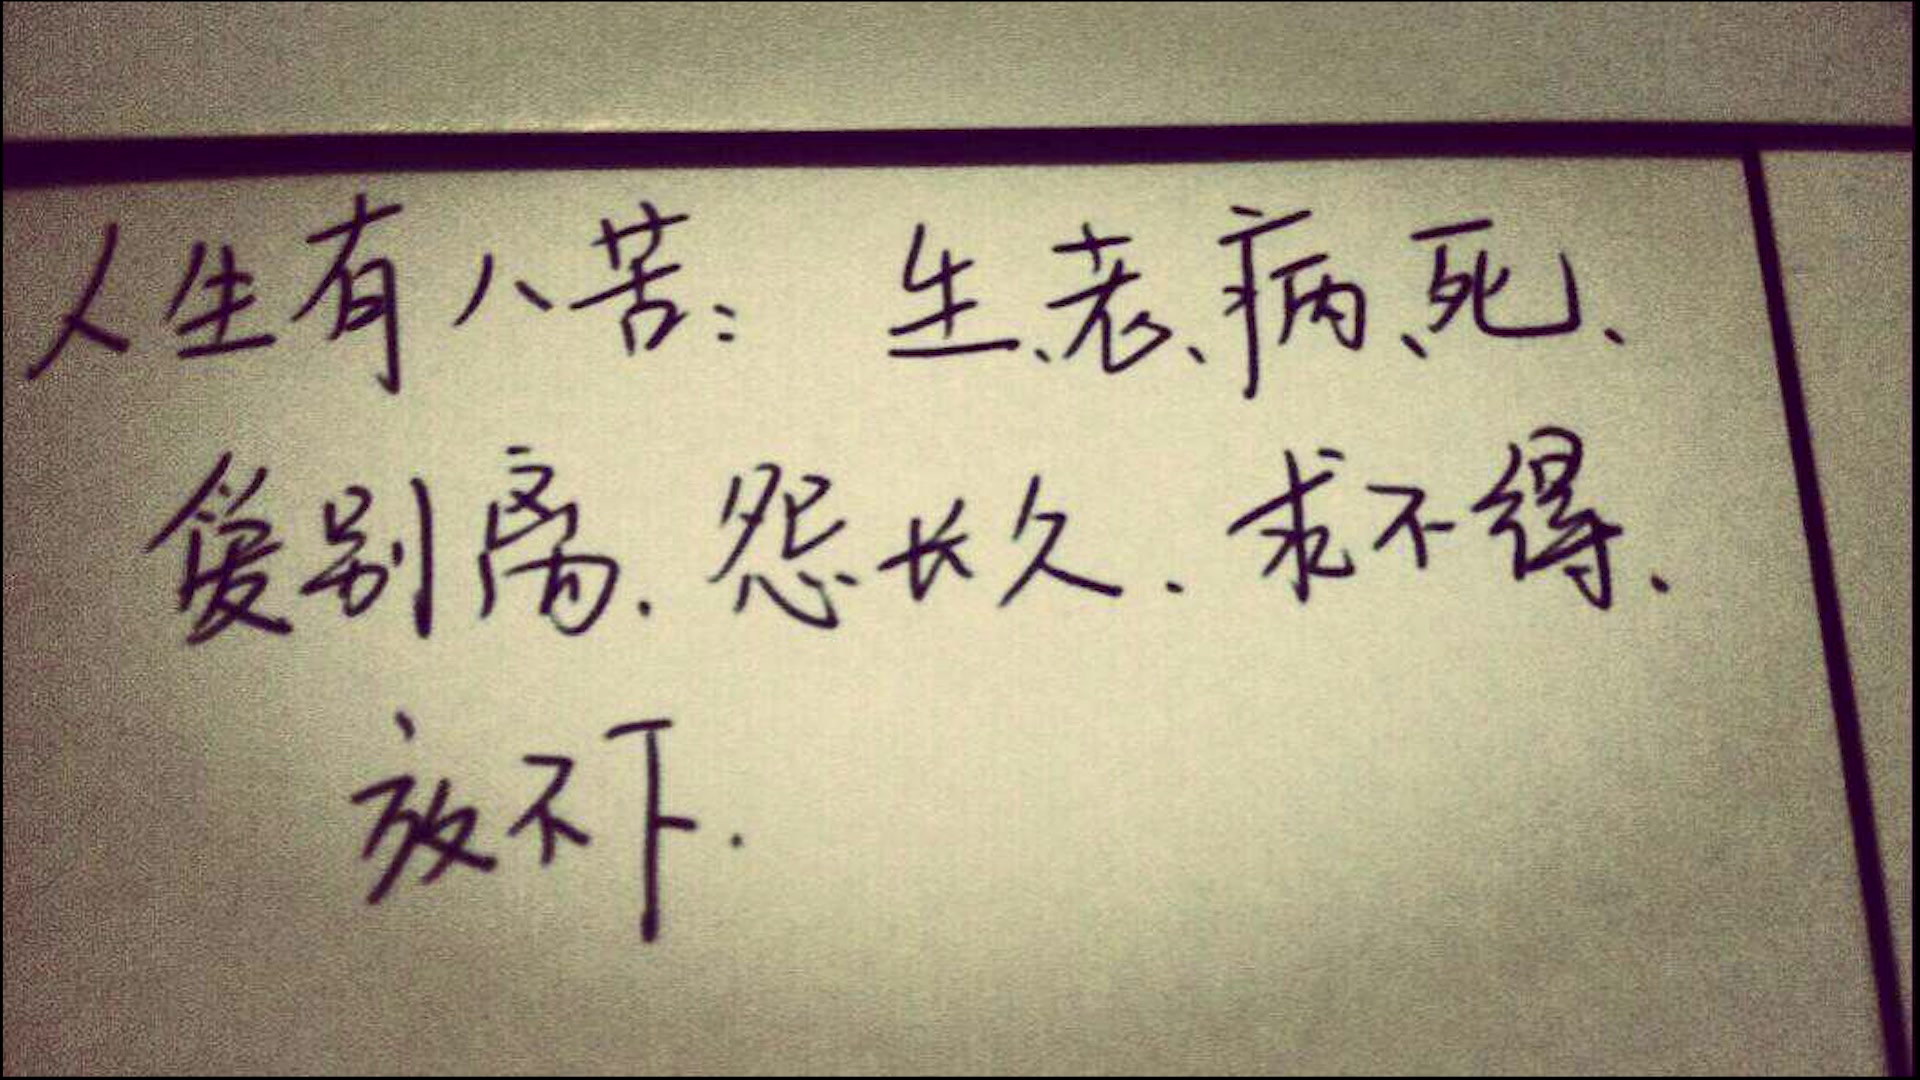 人生有八苦: 生、老、病、死、
爱别离.怨长久.求不得.
放不下.